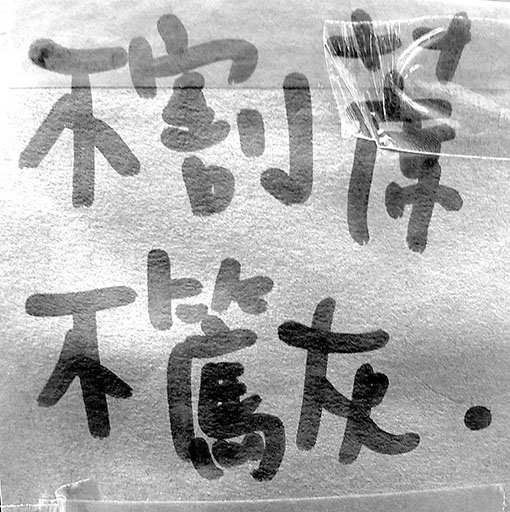 不割蓆
不篤灰.